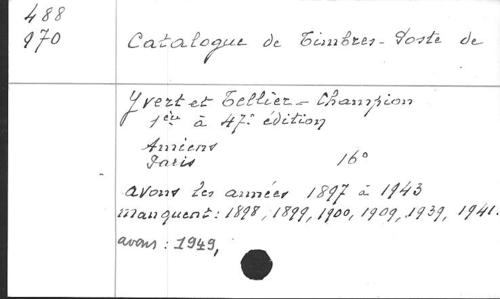 488
970 Catalogue de Timbres-Poste de
Yvert et Tellier - Champion
1ère à 47e édition
Amiens
Paris 16°
avons les années 1897 à 1943
manquent : 1898, 1899, 1900, 1909, 1939, 1941.
avons : 1949,